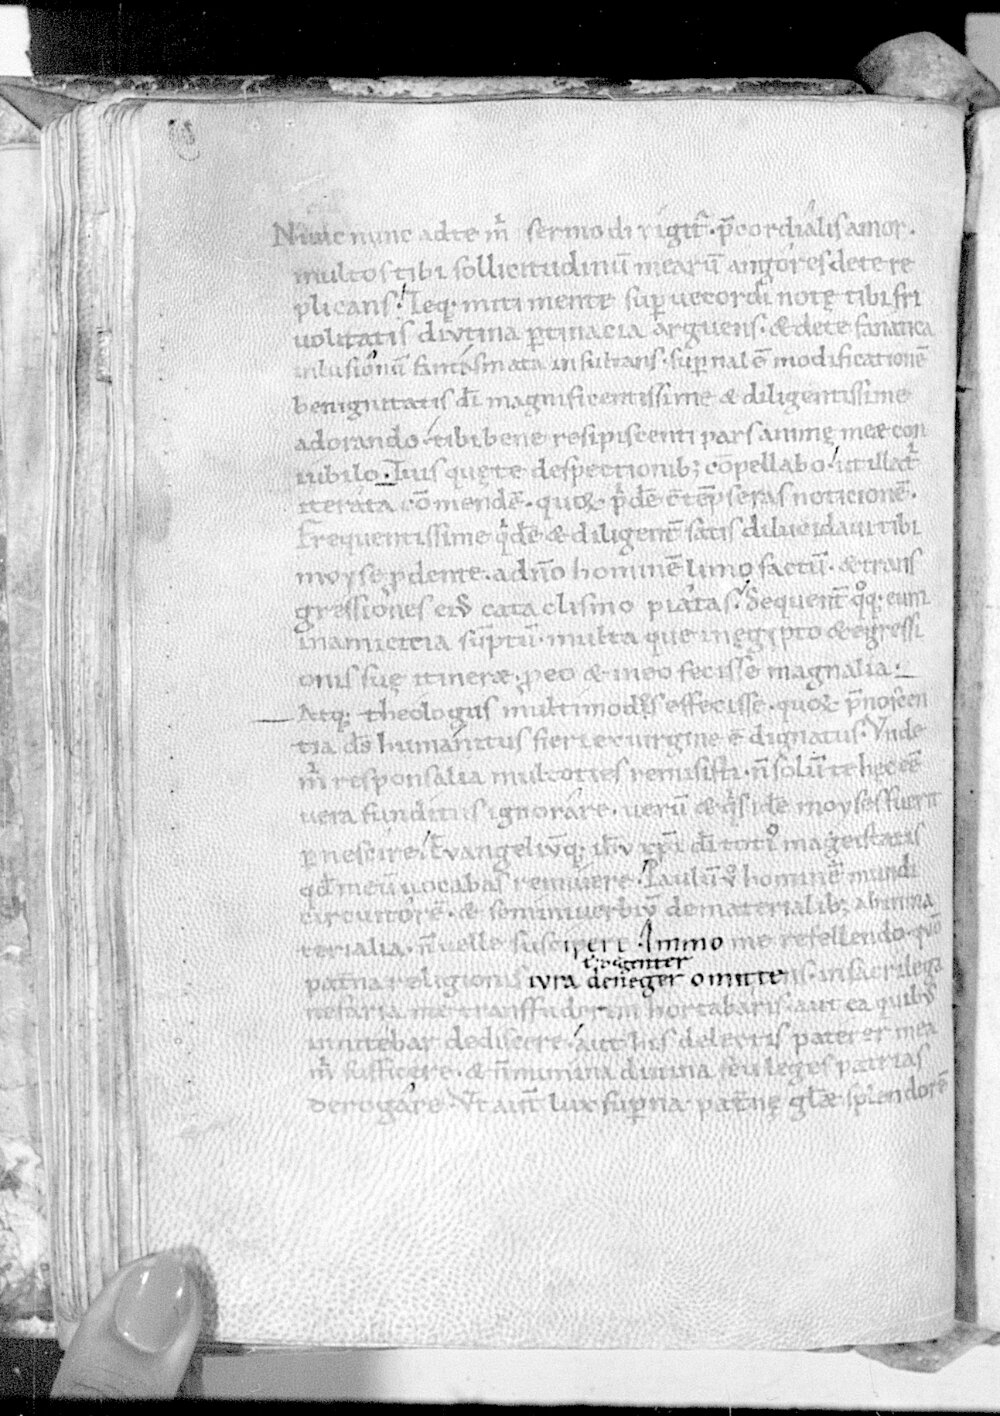 Nunc nunc ad te mr̄ sermo dirigit̄. p̄cordialis amor.
multos tibi sollicitudinū mearū angores de te re
plicans. Teq; miti mente sup uecordi notę tibi fri
uolitatis diutina ptinacia arguens. & de te fanatica
inlusionū fantasmata insultans. supnalē modificationē
benignitatis dī magnificentissime & diligentissime
adorando. tibi bene resipiscenti pars animę meae con
iubilo. Tuis quęte despectionib; cōpellabo. ut illac
iterata cōmendē. noticionē.
Frequentissime & diligent̄ satis dilucidaui tibi
moyse pdente. ad nr̄o hominē limo factū. & trans
gressiones ei cataclismo piatas. Sequent̄ qq; eum
in amicicia sūptū. multa que in ęgypto & egressi
onis suę itinere. p eo & in eo fecisse magnalia.
Atq; theologus multimodis effecisse. p̄noscen
tia ds̄ humanitus fieri ex uirgine ē dignatus. Vnde
mr̄ responsalia multoties remisisti. n̄ solū te hęc ēē
uera funditus ignorare. uerū & q̄s idē moyses fuerit
pnescire. Euangeliūq; ih̄u xp̄i dī toti magestatis
qd̄ meū uocabas remuere. Paulū hominē mundi
circuitorē. & seminiuerbiū de materialib; ab inma
terialia. n̄ uelle suscipere. Immo me refellendo quo
pat̄na religionis iura deneger omitte in sacrilega
t̄
nefaria me transfuderem hortabaris. aut ea quib;
innitebar dediscere. aut his delectis pater er mea
mr̄ sufficere. & n̄ numina diuina seu leges patrias
derogare. Vt aut̄ lux supna pat̄nę glāe splendorē